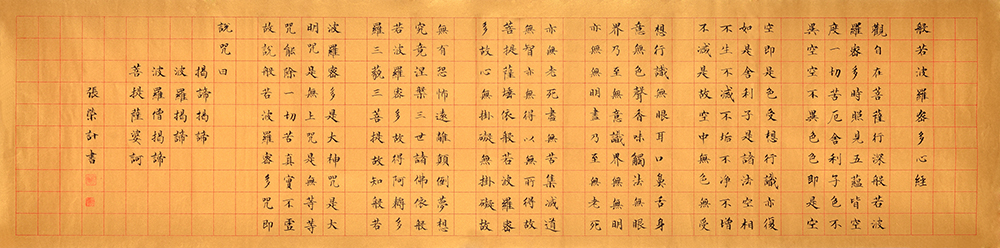 般若波羅密多心經
觀自在菩薩行深般若波
羅密多時照見五蘊皆空
度一切苦厄舍利子色不
異空空不異色色即是空
空即是色受想行識亦復
如是舍利子是諸法空相
不生不滅不垢不淨不增
不減是故空中無色無受
想行識無眼耳口鼻舌身
意無色聲香味觸法無眼
界乃至無意識界無無明
亦無無明盡乃至無老死
亦無老死盡無苦集滅道
無智亦無得以無所得故
菩提薩埵依般若波羅密
多故心無掛礙無掛礙故
無有恐怖遠離顛倒夢想
究竟涅槃三世諸佛依般
若波羅密多故得阿耨多
羅三藐三菩提故知般若
波羅密多是大神咒是大
明咒是無上咒是無等等
咒能除一切苦真實不虛
故說般若波羅密多咒即
說咒曰
揭諦揭諦
波羅揭諦
波羅僧揭諦
菩提薩婆訶
張榮計書